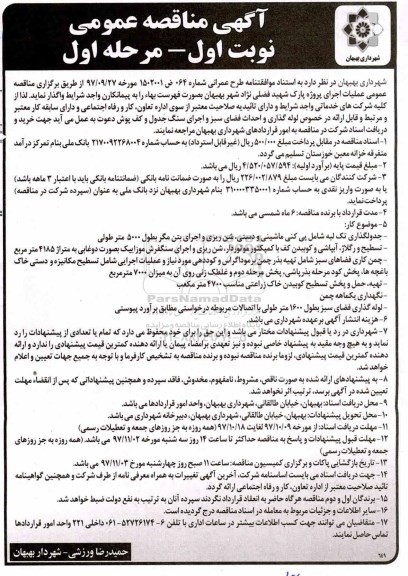 آگهی مناقصه عمومی
نوبت اول – مرحله اول
شهرداری بهبهان
شهرداری بهبهان در نظر دارد به استناد موافقتنامه طرح عمرانی شماره ۰۶۴ ض ۱۵۰۲۰۰۱ مورخه ۹۷/۰۹/۲۷ از طریق برگزاری مناقصه
عمومی عملیات اجرای پروژه پارک شهید فضلی نژاد شهر بهبهان بصورت فهرست بهاء را به پیمانکارن واجد شرایط واگذار نماید. لذا از
کلیه شرکت های خدماتی واجد شرایط و دارای تائیدیه صلاحیت معتبر از سوی اداره تعاون، کار و رفاه اجتماعی و دارای سابقه کار معتبر
و مرتبط و قابل ارائه در خصوص لوله گذاری و احداث فضای سبز و اجرای سنگ جدول و کف پوش دعوت به عمل می آید جهت خرید و
دریافت اسناد شرکت در مناقصه به امور قراردادهای شهرداری بهبهان مراجعه نمایند.
۱- اسناد مناقصه در مقابل پرداخت مبلغ ۵۰۰/۰۰۰ ریال (غیرقابل استرداد) به حساب شماره ۲۱۷۰۰۹۲۲۶۸۰۰۴ بانک ملی بنام تمرکز درآمد
متفرقه خزانه معین خوزستان تسلیم می گردد.
۲- مبلغ قیمت پایه (برآورد اولیه): ۴/۵۲۰/۰۵۷/۵۹۴ ریال می باشد.
۳- شرکت کنندگان می بایست مبلغ ۲۲۶/۰۰۲/۸۷۹ ریال را به صورت ضمانت نامه بانکی (ضمانتنامه بانکی باید با اعتبار ۳ ماهه باشد)
یا به صورت واریز نقدی به حساب شماره ۳۱۰۰۰۰۳۳۵۰۰۰۱ بنام شهرداری بهبهان نزد بانک ملی به عنوان (سپرده شرکت در مناقصه)
پرداخت نماید.
۴- مدت قرارداد با برنده مناقصه: ۶ ماه شمسی می باشد.
۵- موضوع کار:
- جدولگذاری تک لبه شامل پی کنی ماشینی و دستی، شن ریزی و اجرای بتن مگر بطول ۵۰۰۰ متر طولی
- تسطیح و رگلاژ، آبپاشی و کوبیدن کف با کمپکتور موتوردار، شن ریزی و اجرای سنگفرش موزاییک بصورت دوغابی به متراژ ۴۱۸۵ متر مربع
- چمن کاری فضاهای سبز شامل تهیه بذر چمن برموداگراس و کوددهی مورد نیاز و عملیات اجرایی شامل تسطیح مکانیزه و دستی خاک
باغچه ها، پخش کود مرحله بذرپاشی، پخش مرحله دوم و غلطک زنی روی آن به میزان ۷۰۰۰ مترمربع
- تهیه، حمل و پخش تسطیح کوبیدن خاک زراعتی مناسب ۴۷۰۰ متر مکعب
- نگهداری یکماهه چمن
- لوله گذاری فضای سبز بطول ۱۶۰۰ متر طولی با اتصالات مربوطه درخواستی مطابق برآورد پیوستی
۶- هزینه انتشار آگهی برعهده شهرداری می باشد.
۷- شهرداری در رد یا قبول پیشنهادات مختار می باشد و این حق را برای خود محفوظ می دارد که تمام یا تعدادی از پیشنهادات را رد
نماید و به هیچ وجه مقید به پیشنهاد خاصی نبوده و نیز تعهدی برامضاء پیمان با ارائه دهنده کمترین قیمت پیشنهادی را ندارد و ارائه
دهنده کمترین قیمت پیشنهادی، لزوما برنده مناقصه نبوده و برنده مناقصه به تشخیص کارفرما و با توجه به جمیع جهات تعیین و اعلام
خواهد شد.
۸- به پیشنهادهای ارائه شده به صورت ناقص، مشروط، نامفهوم، مخدوش، فاقد سپرده و همچنین پیشنهاداتی که پس از انقضاء مهلت
تعیین شده در آگهی برسد، ترتیب اثر نخواهد شد.
۹- محل دریافت اسناد: بهبهان، خیابان طالقانی، شهرداری بهبهان، واحد امور قراردادها می باشد.
۱۰- محل تحویل پیشنهادات: بهبهان، خیابان طالقانی، شهرداری بهبهان، دبیرخانه شهرداری می باشد.
۱۱- مهلت دریافت اسناد: از مورخه ۹۷/۱۰/۰۹ لغایت ۹۷/۱۰/۱۸ (همه روزه به جز روزهای جمعه و تعطیلات رسمی)
۱۲- مهلت قبول پیشنهادات و پاسخ به مناقصه حداکثر تا ساعت ۱۴ روز سه شنبه مورخه ۹۷/۱۱/۰۲ می باشد. (همه روزه به جز روزهای
جمعه و تعطیلات رسمی)
۱۳- تاریخ بازگشایی پاکات و برگزاری کمیسیون مناقصه: ساعت ۱۱ صبح روز چهارشنبه مورخ ۹۷/۱۱/۰۳ می باشد.
۱۴- جهت دریافت اسناد می بایست اساسنامه شرکت، آخرین آگهی تغییرات به همراه معرفی نامه از طرف شرکت و همچنین گواهینامه
تائید صلاحیت معتبر از اداره تعاون، کار و رفاه اجتماعی ارائه گردد.
۱۵- برندگان اول و دوم مناقصه هرگاه حاضر به انعقاد قرارداد نگردند سپرده آنان به ترتیب به نفع دولت ضبط خواهد شد.
۱۶- سایر اطلاعات و جزئیات مربوط به معامله در اسناد مناقصه درج گردیده است.
۱۷- متقاضیان می توانند جهت کسب اطلاعات بیشتر در ساعات اداری با تلفن ۶-۵۲۷۲۶۱۷۴-۰۶۱ داخلی ۲۲۱ واحد امور قراردادها
تماس حاصل نمایند.
حمیدرضا ورزشی- شهردار بهبهان